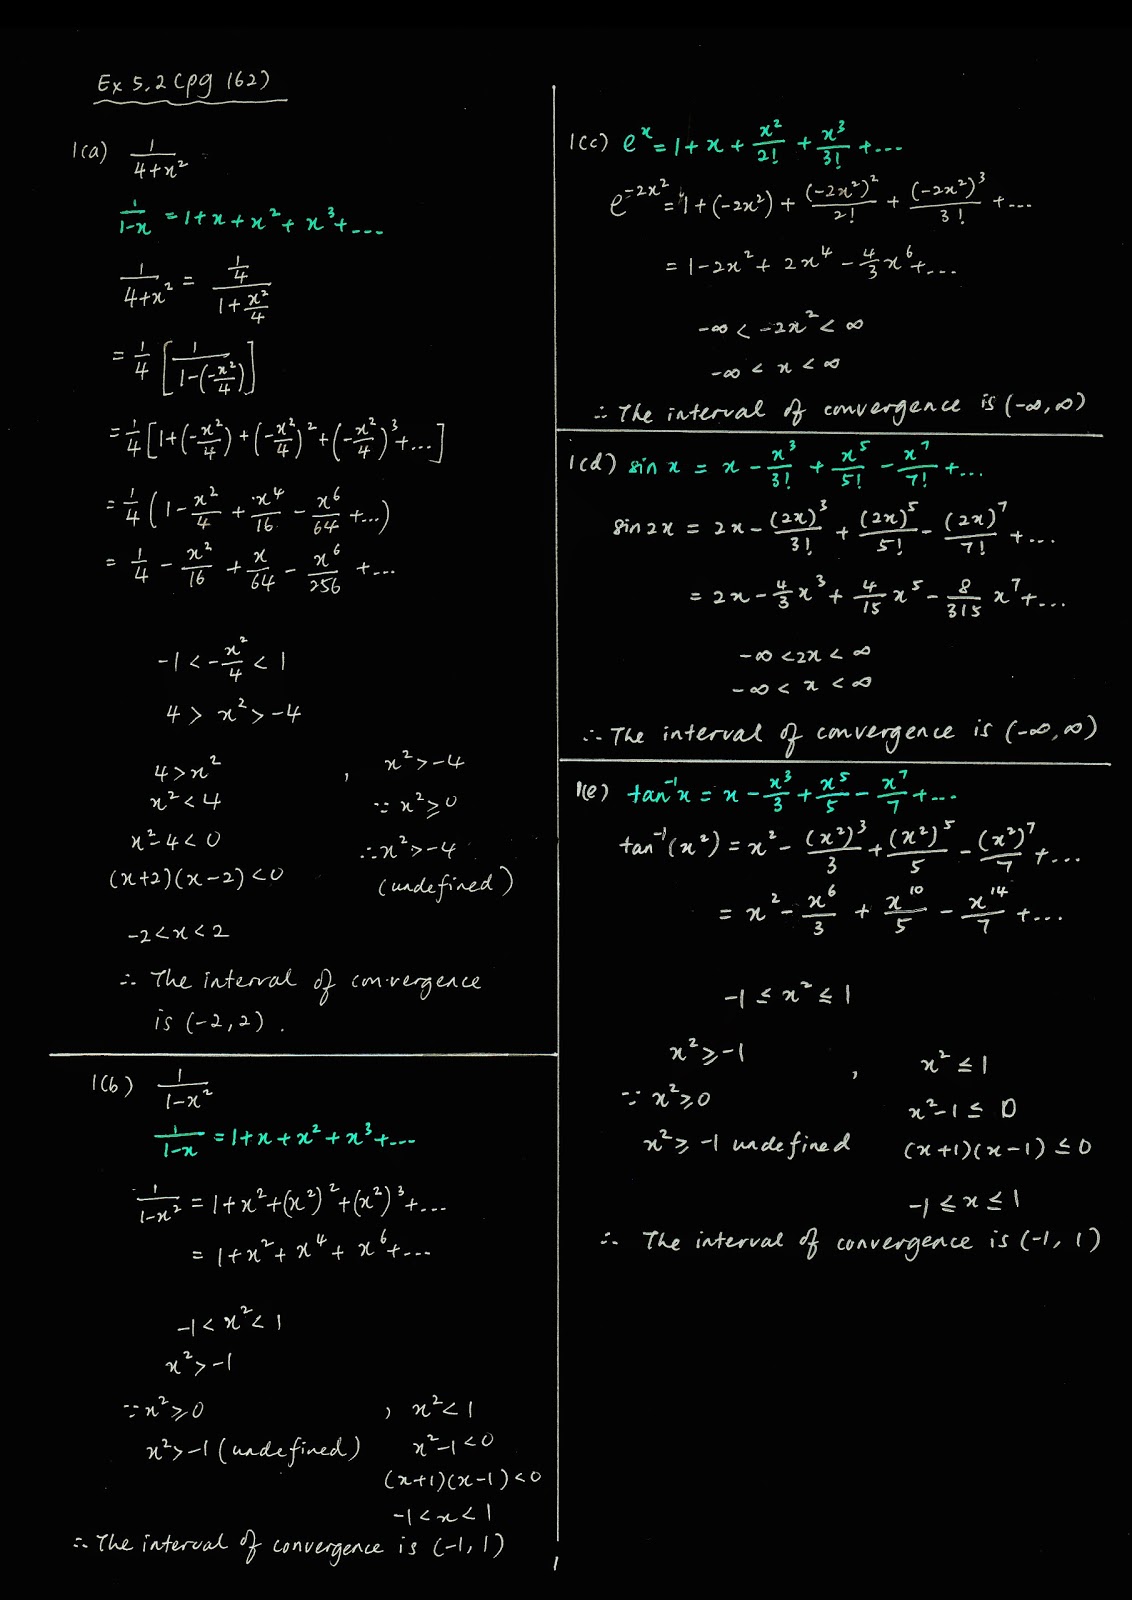 Ex 5.2 (pg 162)
1(a) 1/(4+x²)
1/(1-x) = 1+x+x²+x³+...
1/(4+x²) = (1/4)/(1+x²/4)
= 1/4 [1/(1-(-x²/4))]
= 1/4 [1+(-x²/4)+(-x²/4)²+(-x²/4)³+...]
= 1/4 (1 - x²/4 + x⁴/16 - x⁶/64 + ...)
= 1/4 - x²/16 + x/64 - x⁶/256 + ...
-1 < -x²/4 < 1
4 > x² > -4
4 > x² , x² > -4
x² < 4 ∵ x² ≥ 0
x²-4 < 0 ∴ x² > -4
(x+2)(x-2) < 0 (undefined)
-2 < x < 2
∴ The interval of convergence
is (-2, 2).
1(b) 1/(1-x²)
1/(1-x) = 1+x+x²+x³+...
1/(1-x²) = 1+x²+(x²)²+(x²)³+...
= 1+x²+x⁴+x⁶+...
-1 < x² < 1
x² > -1
∵ x² ≥ 0 , x² < 1
x² > -1 (undefined) x²-1 < 0
(x+1)(x-1) < 0
-1 < x < 1
∴ The interval of convergence is (-1, 1)
1(c) eˣ = 1+x+x²/2!+x³/3!+...
e^(-2x²) = 1+(-2x²)+(-2x²)²/2!+(-2x²)³/3!+...
= 1-2x²+2x⁴-4/3 x⁶+...
-∞ < -2x² < ∞
-∞ < x < ∞
∴ The interval of convergence is (-∞, ∞)
1(d) sin x = x - x³/3! + x⁵/5! - x⁷/7! + ...
sin 2x = 2x - (2x)³/3! + (2x)⁵/5! - (2x)⁷/7! + ...
= 2x - 4/3 x³ + 4/15 x⁵ - 8/315 x⁷ + ...
-∞ < 2x < ∞
-∞ < x < ∞
∴ The interval of convergence is (-∞, ∞)
1(e) tan⁻¹x = x - x³/3 + x⁵/5 - x⁷/7 + ...
tan⁻¹(x²) = x² - (x²)³/3 + (x²)⁵/5 - (x²)⁷/7 + ...
= x² - x⁶/3 + x¹⁰/5 - x¹⁴/7 + ...
-1 ≤ x² ≤ 1
x² ≥ -1 , x² ≤ 1
∵ x² ≥ 0 x²-1 ≤ 0
x² ≥ -1 undefined (x+1)(x-1) ≤ 0
-1 ≤ x ≤ 1
∴ The interval of convergence is (-1, 1)
1